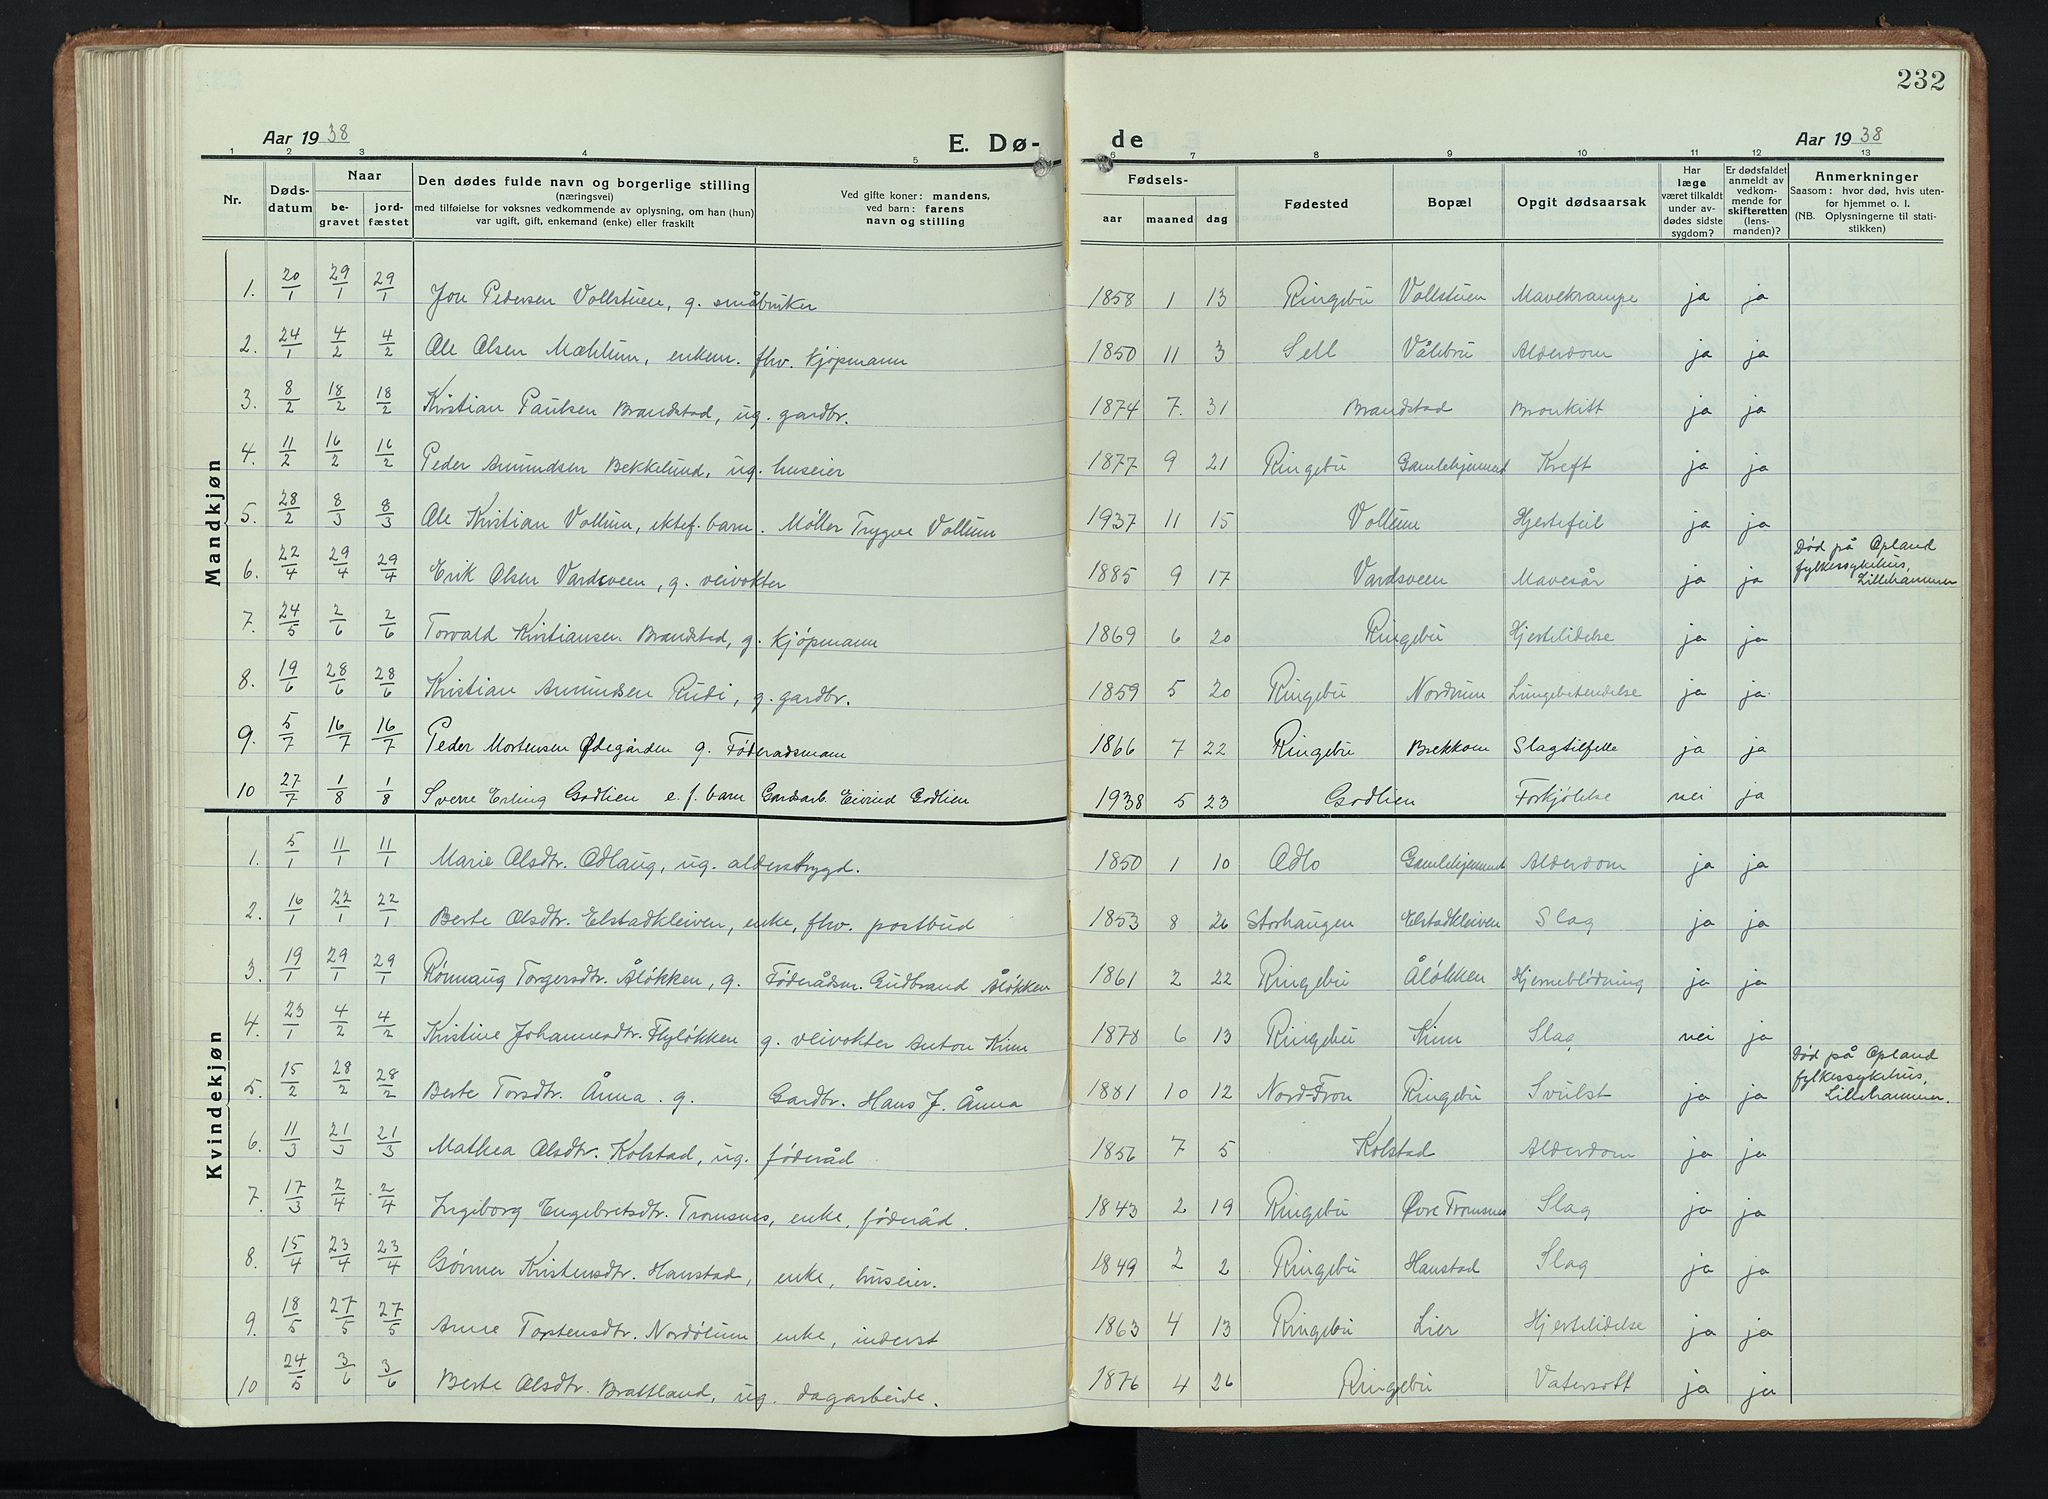 232
Aar 1938 E. Dø- de Aar 1938
1 2 3 4 5 6 7 8 9 10 11 12 13
Nr. Døds-datum Naar be-gravet jord-fæstet Den dødes fulde navn og borgerlige stilling (næringsvei) med tilføielse for voksnes vedkommende av oplysning, om han (hun) var ugift, gift, enkemand (enke) eller fraskilt Ved gifte koner: mandens, ved barn: farens navn og stilling Fødsels- aar maaned dag Fødested Bopæl Opgit dødsaarsak Har læge været tilkaldt under av-dødes sidste sygdom? Er dødsfaldet anmeldt av vedkom-mende for skifteretten (lens-manden)? Anmerkninger Saasom: hvor død, hvis uten-for hjemmet o. l. (NB. Oplysningerne til stati-stikken)
Mandkjøn
1. 20/1 29/1 29/1 Jon Pedersen Vollstuen, g. småbruker 1858 1 13 Ringebu Vollstuen Mavekrampe ja ja
2. 24/1 4/2 4/2 Ole Olsen Mæhlum, enkem. fhv. kjøpmann 1850 11 3 Sell Vålebru Alderdom ja ja
3. 8/2 18/2 18/2 Kristian Paulsen Brandstad, ug. gardbr. 1874 7. 31 Brandstad Bronkitt ja ja
4. 11/2 16/2 16/2 Peder Amundsen Bekkelund, ug. huseier 1877 9 21 Ringebu Gamlehjemmet Kreft ja ja
5. 28/2 8/3 8/3 Ole Kristian Vollum, ektef. barn. Møller Trygve Vollum 1937 11 15 Vollum Hjertefeil ja ja
6. 22/4 29/4 29/4 Erik Olsen Vardsveen, g. veivokter 1885 9 17 Vardsveen Mavesår ja ja Død på Opland fylkessykehus, Lillehammer
7. 24/5 2/6 2/6 Torvald Kristiansen Brandstad, g. kjøpmann 1869 6 20 Ringebu Hjertelidelse ja ja
8. 19/6 28/6 28/6 Kristian Amundsen Rudi, g. gardbr. 1859 5 20 Ringebu Nordrum Lungebetendelse ja ja.
9. 5/7 16/7 16/7 Peder Mortensen Ødegården g. Føderadsmann 1866 7 22 Ringebu Brekkom Slagtilfelle ja ja
10 27/7 1/8 1/8 Sverre Erling Godlien e. f. barn Gardsarb. Eivind Godlien 1938 5 23 Godlien Forkjølelse nei ja
Kvindekjøn
1. 5/1 11/1 11/1 Marie Olsdtr. Odlaug, ug. alderstrygd. 1850 1 10 Odlo Gamlehjemmet Alderdom ja ja
2. 16/1 22/1 22/1 Berte Olsdtr. Elstadkleiven, enke, fhv. postbud 1853 8 26 Storhaugen Elstadkleiven Slag ja ja
3. 19/1 29/1 29/1 Rønnaug Torgersdtr. Åløkken, g. Føderådsm. Gudbrand Åløkken 1861 2 22 Ringebu Åløkken Hjerneblødning ja ja
4. 23/1 4/2 4/2 Kristine Johannesdtr. Flyløkken g. veivokter Anton Kim 1878 6 13 Ringebu Kim Slag nei ja
5. 15/2 28/2 28/2 Berte Torsdtr. Ånna. g. Gardbr. Hans J. Ånna 1881 10 12 Nord-Fron Ringebu Svulst ja ja Død på Opland fylkessykehus, Lillehammer.
6. 11/3 21/3 21/3 Mathea Olsdtr. Kolstad, ug. føderåd 1856 7 5 Kolstad Alderdom ja ja
7. 17/3 2/4 2/4 Ingeborg Engebretsdtr. Tromsnes, enke, føderåd. 1843 2 19 Ringebu Øvre Tromsnes Slag ja ja
8. 15/4 23/4 23/4 Gørner Kristensdtr. Hanstad, enke, huseier. 1849 2 2 Ringebu Hanstad Slag ja ja
9. 18/5 27/5 27/5 Anne Torstensdtr. Nordølum enke, inderst 1863 4 13 Ringebu Lier Hjertelidelse ja ja
10 24/5 3/6 3/6 Berte Olsdtr. Brattland, ug. dagarbeide. 1876 4 26 Ringebu Vatersott ja ja